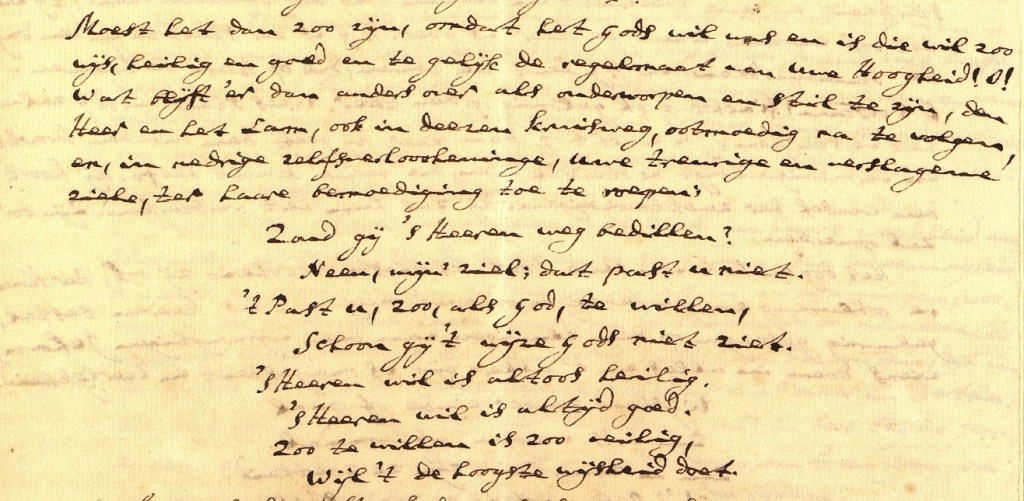 Moest het dan zoo zijn, omdat het Gods wil was en is die wil zoo
wijs, heilig en goed en te gelijk de regelmaat van uwe Hoogheid! O!
Wat blijft 'er dan anders over als onderworpen en stil te zijn, den
Heer en het Lam, ook in deezen kruisweg, ootmoedig na te volgen,
en, in nedrige zelfsverloocheninge, uwe treurige en verslagene
ziele, ter haare bemoediging toe te roepen:
Zoud gij 's Heeren weg bedillen?
Neen, mijn ziel; dat past u niet.
't Past u, zoo, als God, te willen,
Schoon gij 't wijze Gods niet ziet.
's Heeren wil is altoos heilig,
's Heeren wil is altijd goed.
Zoo te willen is zoo veilig,
Wijl 't de hoogste wijsheid doet.